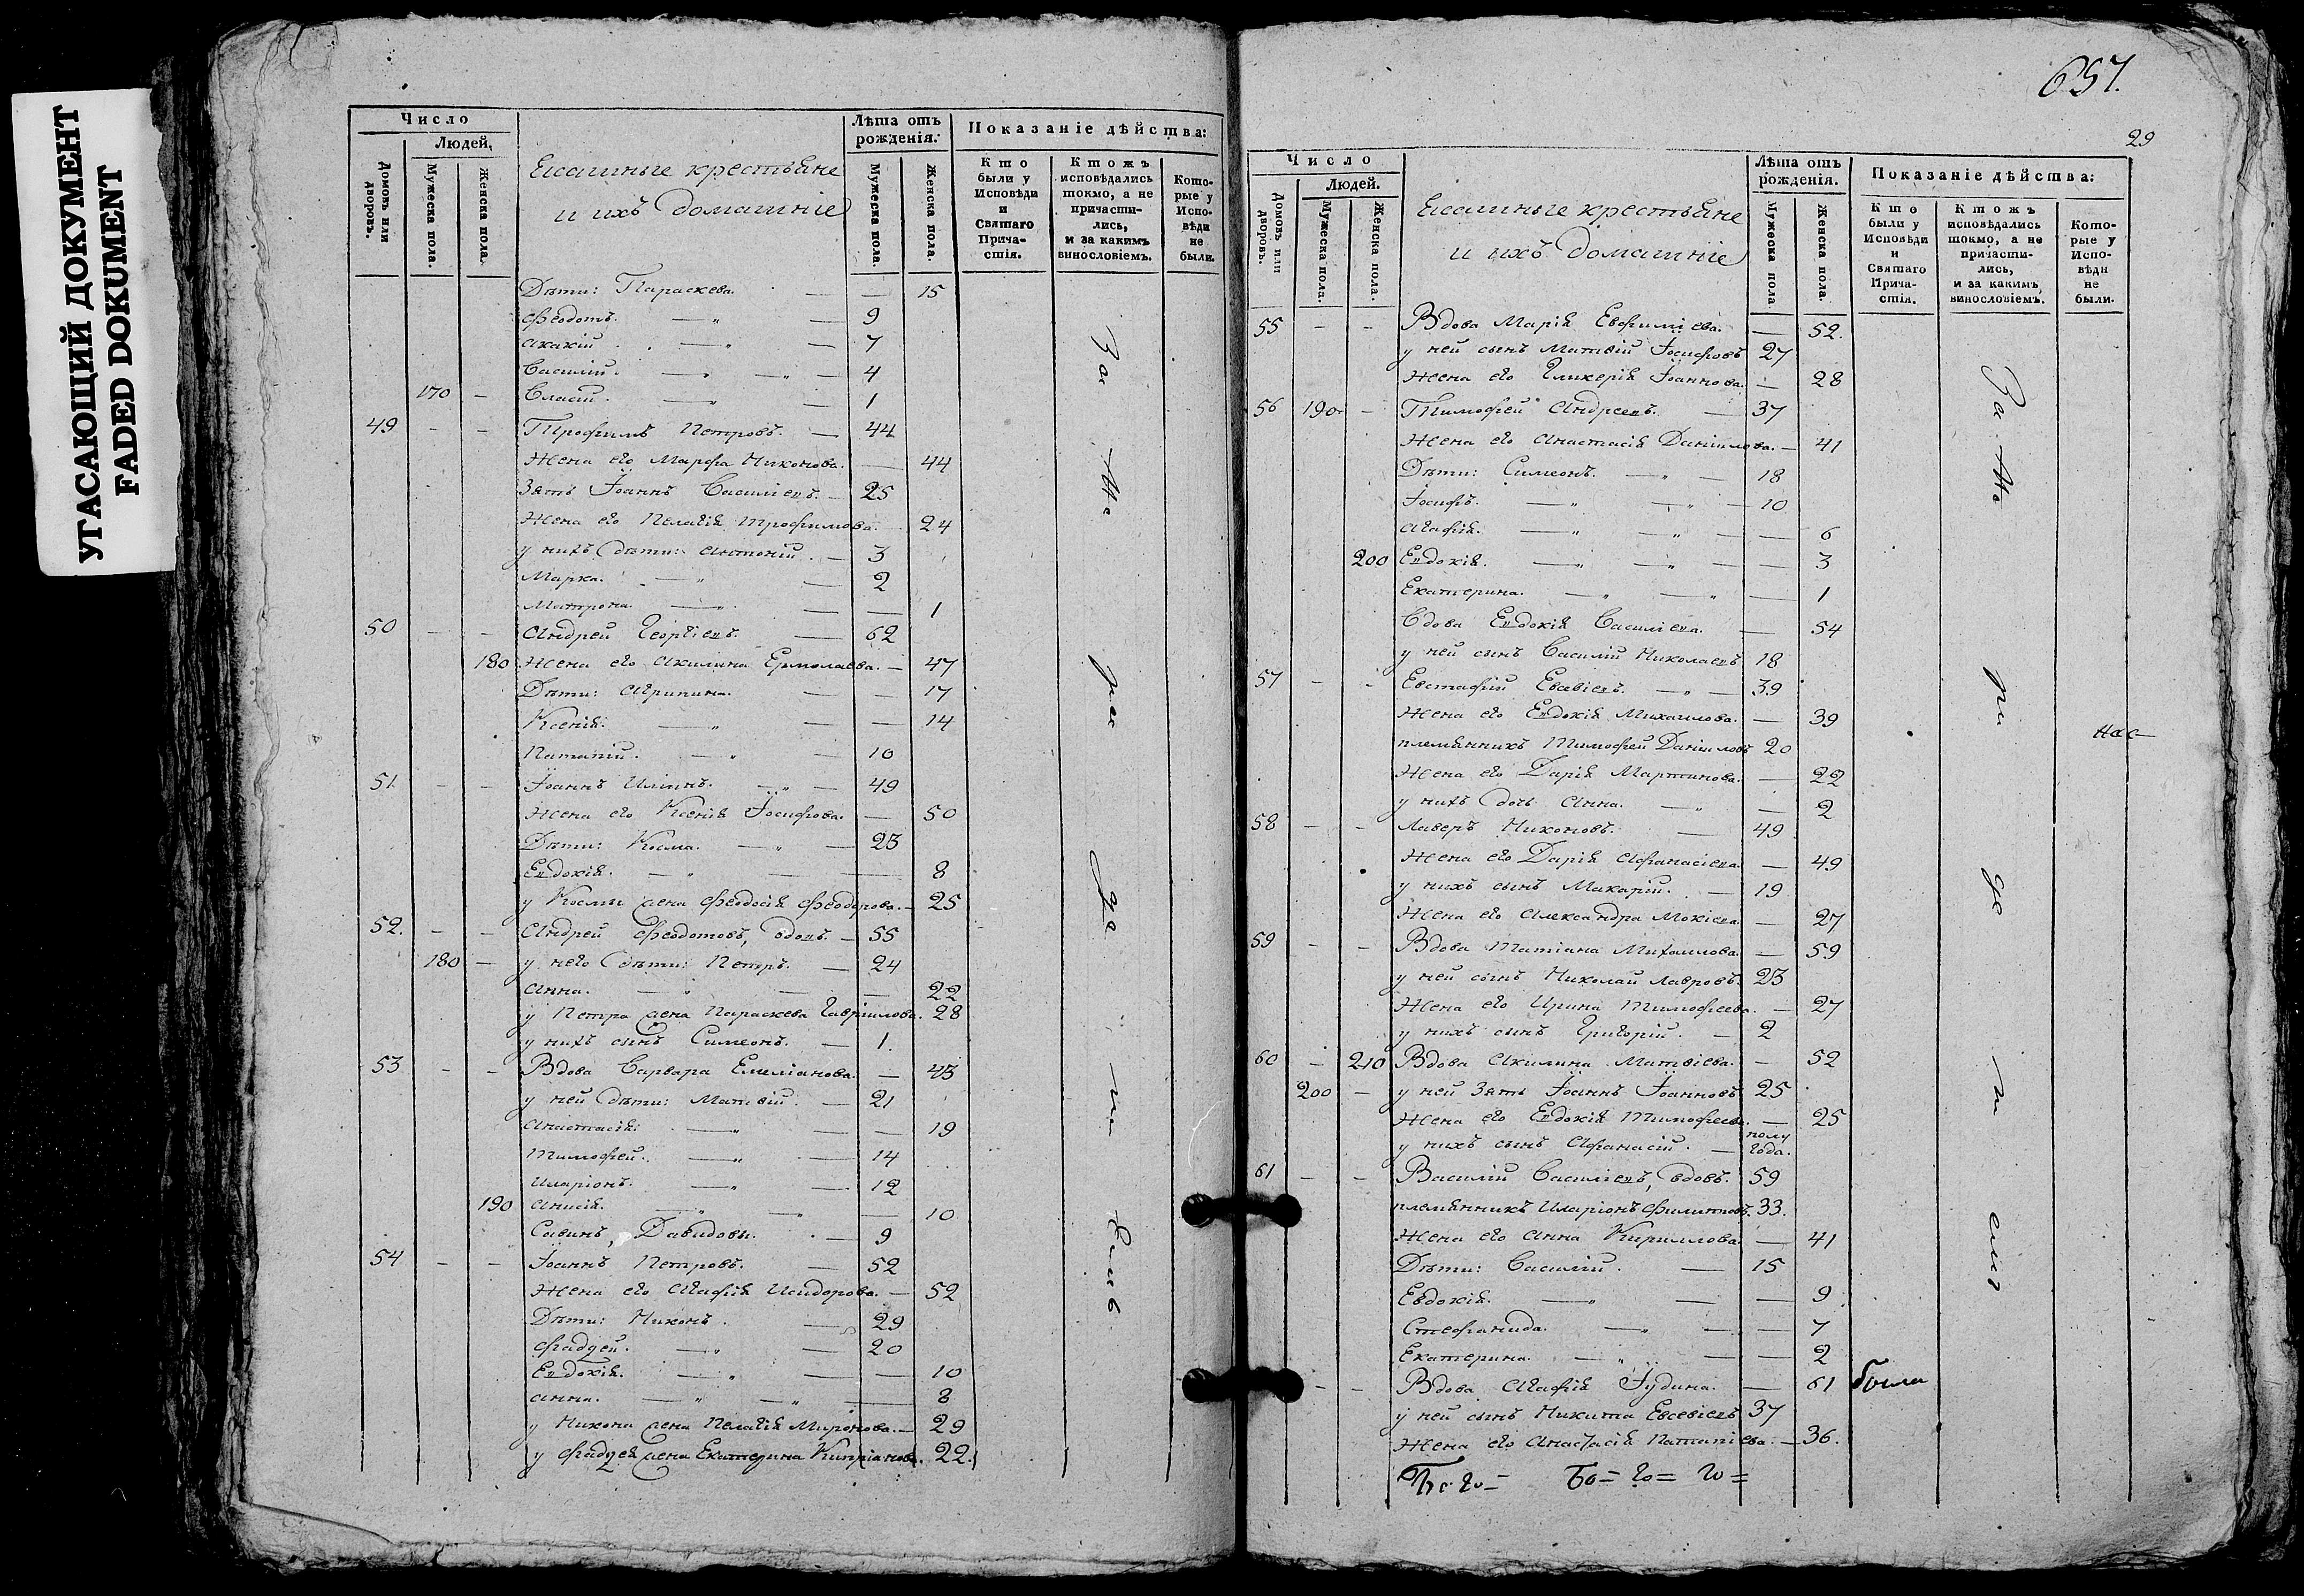 УГАСАЮЩИЙ ДОКУМЕНТ
FADED DOKUMENT
Число
Людей.
Домовъ или дворовъ.
Мужеска пола.
Женска пола.
Ясашные крестьяне
и ихъ домашніе
Лѣта отъ рожденія.
Мужеска пола.
Женска пола.
Показаніе дѣйства:
Кто были у Исповѣди и Святаго Причастія.
Ктожъ исповѣдались токмо, а не причастились, и за какимъ винословіемъ.
Которые у Исповѣди не были.
Дѣти: Параскева. — — 15
Феодотъ. — „ — 9
Акакій . . — „ — 7
Василій. — „ — „ — 4
170 — Власій. — „ — 1
49 - - Трофимъ Петровъ. — 44
Жена его Марѳа Никонова. — 44
Зять Іоаннъ Васильевъ. — 25
Жена его Пелагія Трофимова. 24
у нихъ дѣти: Антоній. — 3
Марка. — „ — 2
Матрона. — „ — — 1
50 - - Андрей Георгіевъ. — 62
180 Жена его Акилина Ермолаева. — 47
Дѣти: Агрипина. — — 17
Ксенія. — „ — — 14
Патапій. — „ — 10
51. - - Іоаннъ Ильинъ. — „ — 49
Жена его Ксенія Іосифова. — 50
Дѣти: Косма. — „ — 23
Евдокія. — „ — — 8
у Космы жена Феодосія Феодорова. — 25
52. - - Андрей Феодотовъ, вдовъ. — 55
180 — у него дѣти: Петръ. — 24
Анна. — „ — — 22
у Петра жена Параскева Гавріилова. 28
у нихъ сынъ Симеонъ. — 1.
53 - - Вдова Варвара Емеліанова. — 43
у ней дѣти: Матвій. — 21
Анастасія: — „ — — 19
Тимофей. — „ — 14
Иларіонъ. — „ — 12
190 Анисія. — „ — „ — 10
Савинъ, Давидовы. — 9
54 - - Іоаннъ Петровъ. — 52
Жена его Агафія Исидорова. — 52
Дѣти: Никонъ. — 29
Фаддей. — „ — 20
Евдокія. — „ — — 10
Анна. — „ — „ — 8
у Никона жена Пелагія Миронова. — 29
у Фаддея жена Екатерина Кипріанова. 22.
За не ра де ни емъ
657.
29
Число
Людей.
Домовъ или дворовъ.
Мужеска пола.
Женска пола.
Ясашные крестьяне
и ихъ домашніе
Лѣта отъ рожденія.
Мужеска пола
Женска пола.
Показаніе дѣйства:
Кто были у Исповѣди и Святаго Причастія.
Ктожъ исповѣдались токмо, а не причастились, и за какимъ винословіемъ.
Которые у Исповѣди не были.
55 - - Вдова Марія Евфиміева. — 52.
у ней сынъ Матвій Іосифовъ 27
Жена его Гликерія Іоаннова. — 28
56 190 - Тимофей Андреевъ. — 37
Жена его Анастасія Даніилова. — 41
Дѣти: Симеонъ. — „ — 18
Іосифъ. — „ — „ — 10
Агафія. — „ — „ — — 6
200 Евдокія. — „ — „ — — 3
Екатерина. — „ — „ — 1
Вдова Евдокія Васильева. — 54
у ней сынъ Василій Николаевъ 18
57 - - Евстафій Евсевіевъ. — „ — 39
Жена его Евдокія Михаилова. — 39
племянникъ Тимофей Даніиловъ 20
Жена его Дарія Мартинова. — 22
у нихъ дочь Анна. — „ — 2
58 - - Лаверъ Никоновъ. — 49
Жена его Дарія Афанасіева. — 49
у нихъ сынъ Макарій. — 19
Жена его Александра Мокіева. — 27
59 - - Вдова Татіана Михаилова. — 59
у ней сынъ Николай Лавровъ. 23
Жена его Ирина Тимофеева. — 27
у нихъ сынъ Григорій. — 2
60 - 210 Вдова Акилина Матвіева. — 52
200 - у ней зять Іоаннъ Іоанновъ 25
Жена его Евдокія Тимофеева. — 25
у нихъ сынъ Афанасій. — полу года.
61 - - Василій Васильевъ, вдовъ. 59
племянникъ Иларіонъ Филитовъ. 33.
Жена его Анна Кириллова. — 41
Дѣти: Василій. — 15
Евдокія. — „ — — 9
Стефанида. — „ — — 7
Екатерина. — „ — — 2
- - Вдова Агафія Іудина. — 61 была
у ней сынъ Никита Евсевіевъ 37
Жена его Анастасія Патапіева. — 36.
За не ра де ні емъ